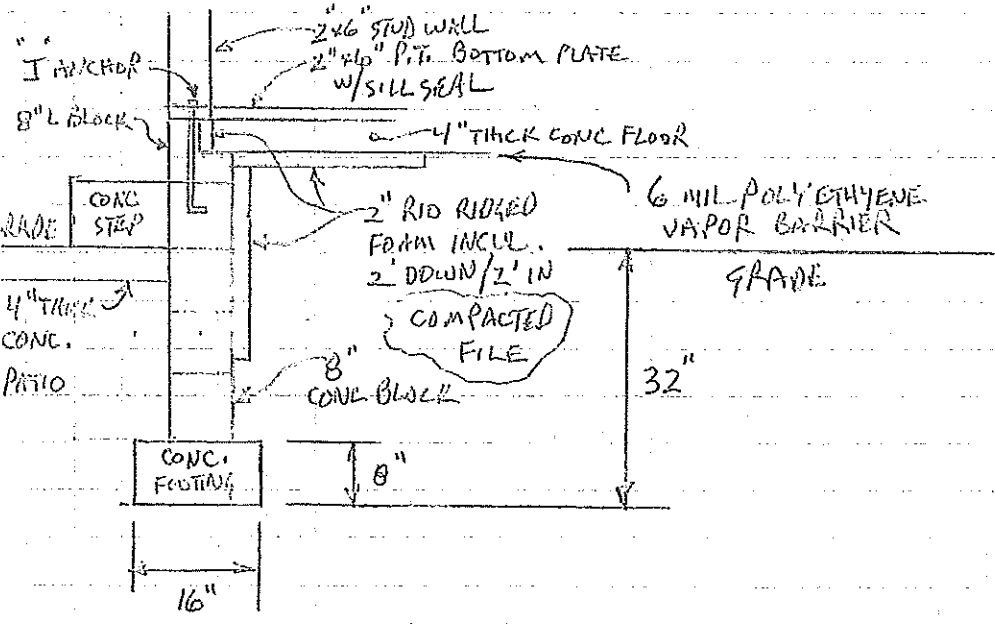 2"x6" STUD WALL
2"x6" P.T. BOTTOM PLATE
W/SILL SEAL
"J" ANCHOR
8" L BLOCK
4" THICK CONC FLOOR
CONC
STEP
RADE
2" RIO RIDGED
FOAM INCUL.
2' DOWN/2' IN
6 MIL POLYETHYENE
VAPOR BARRIER
GRADE
4" THICK
CONC.
PATIO
COMPACTED
FILE
8"
CONC BLOCK
32"
CONC.
FOOTING
8"
16"